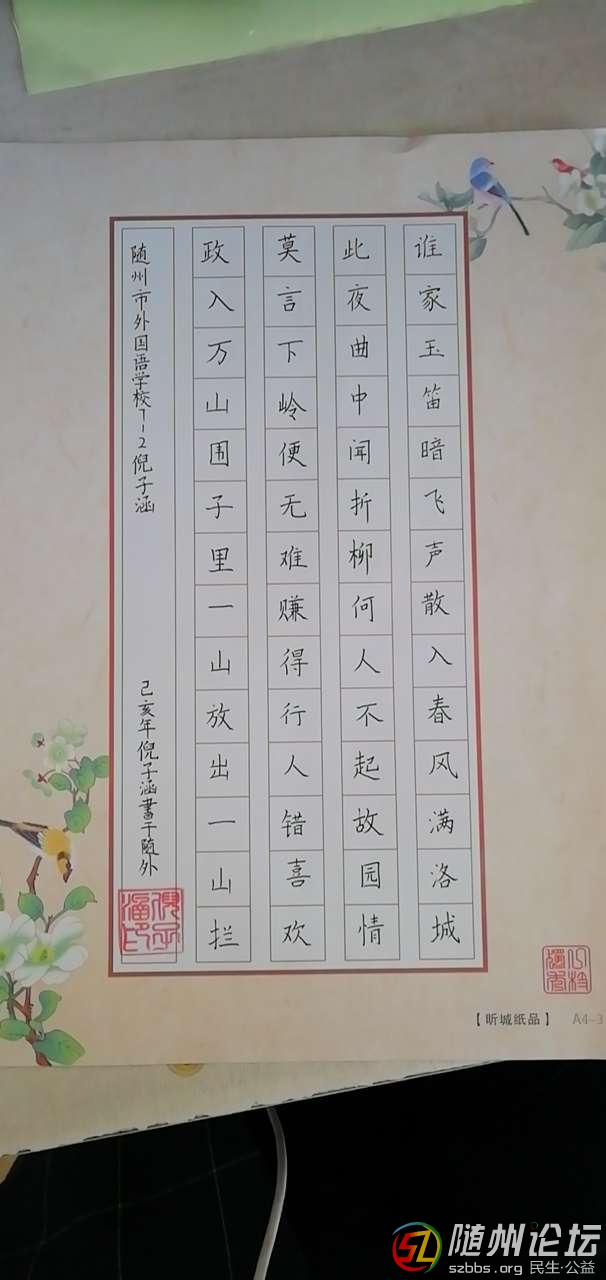 谁家玉笛暗飞声散入春风满洛城
此夜曲中闻折柳何人不起故园情
莫言下岭便无难赚得行人错喜欢
政入万山围子里一山放出一山拦
随州市外国语学校7-2倪子涵
己亥年倪子涵书于随外
倪子涵印
【昕城纸品】 A4-3
随州论坛
szbbs.org 民生·公益